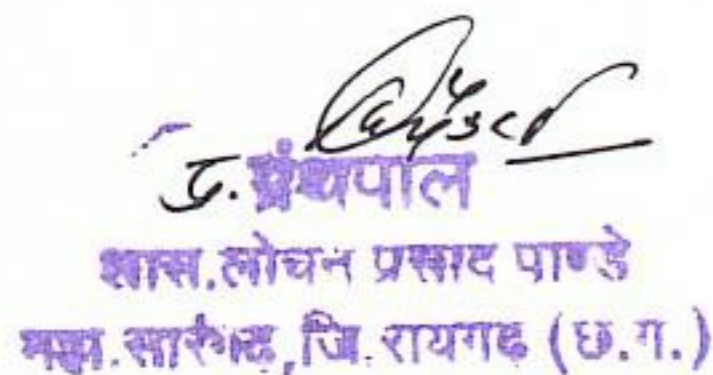 प्र. ग्रंथपाल
शास.लोचन प्रसाद पाण्डे
महा.सारंगढ,जि.रायगढ (छ.ग.)